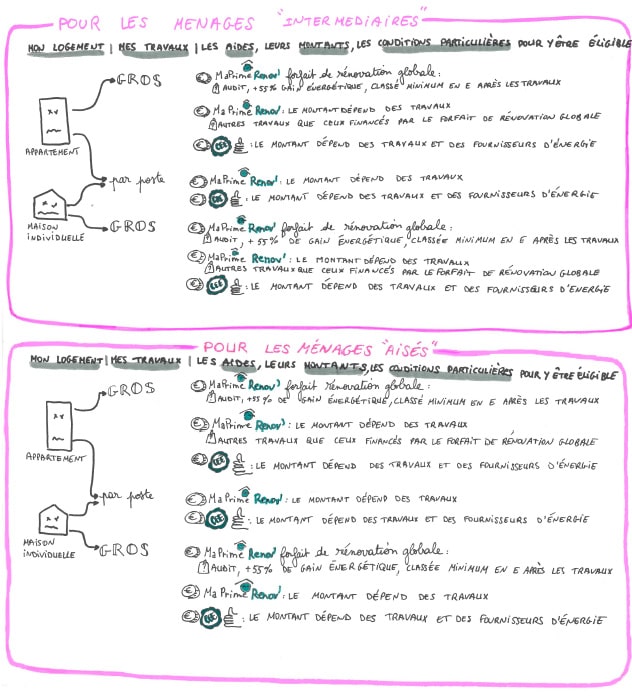 POUR LES MENAGES "INTERMEDIAIRES"
MON LOGEMENT | MES TRAVAUX | LES AIDES, LEURS MONTANTS, LES CONDITIONS PARTICULIÈRES POUR Y ÊTRE ÉLIGIBLE
GROS
MaPrime Renov' forfait de rénovation globale:
AUDIT, +55% GAIN ÉNERGÉTIQUE, CLASSÉ MINIMUM EN E APRÈS LES TRAVAUX
MaPrime Renov': LE MONTANT DÉPEND DES TRAVAUX
AUTRES TRAVAUX QUE CEUX FINANCÉS PAR LE FORFAIT DE RÉNOVATION GLOBALE
CEE : LE MONTANT DÉPEND DES TRAVAUX ET DES FOURNISSEURS D'ÉNERGIE
APPARTEMENT
par poste
MaPrime Renov': LE MONTANT DÉPEND DES TRAVAUX
CEE : LE MONTANT DÉPEND DES TRAVAUX ET DES FOURNISSEURS D'ÉNERGIE
MAISON INDIVIDUELLE
GROS
MaPrime Renov' forfait de rénovation globale:
AUDIT, +55% DE GAIN ÉNERGÉTIQUE, CLASSÉE MINIMUM EN E APRÈS LES TRAVAUX
MaPrime Renov': LE MONTANT DÉPEND DES TRAVAUX
AUTRES TRAVAUX QUE CEUX FINANCÉS PAR LE FORFAIT DE RÉNOVATION GLOBALE
CEE : LE MONTANT DÉPEND DES TRAVAUX ET DES FOURNISSEURS D'ÉNERGIE
POUR LES MÉNAGES "AISÉS"
MON LOGEMENT | MES TRAVAUX | LES AIDES, LEURS MONTANTS, LES CONDITIONS PARTICULIÈRES POUR Y ÊTRE ÉLIGIBLE
GROS
MaPrime Renov' forfait rénovation globale:
AUDIT, +55% DE GAIN ÉNERGÉTIQUE, CLASSÉ MINIMUM EN E APRÈS LES TRAVAUX
MaPrime Renov': LE MONTANT DÉPEND DES TRAVAUX
AUTRES TRAVAUX QUE CEUX FINANCÉS PAR LE FORFAIT DE RÉNOVATION GLOBALE
CEE : LE MONTANT DÉPEND DES TRAVAUX ET DES FOURNISSEURS D'ÉNERGIE
APPARTEMENT
par poste
MaPrime Renov': LE MONTANT DÉPEND DES TRAVAUX
CEE : LE MONTANT DÉPEND DES TRAVAUX ET DES FOURNISSEURS D'ÉNERGIE
MAISON INDIVIDUELLE
GROS
MaPrime Renov' forfait de rénovation globale:
AUDIT, +55% DE GAIN ÉNERGÉTIQUE, CLASSÉE MINIMUM EN E APRÈS LES TRAVAUX
MaPrime Renov': LE MONTANT DÉPEND DES TRAVAUX
CEE : LE MONTANT DÉPEND DES TRAVAUX ET DES FOURNISSEURS D'ÉNERGIE